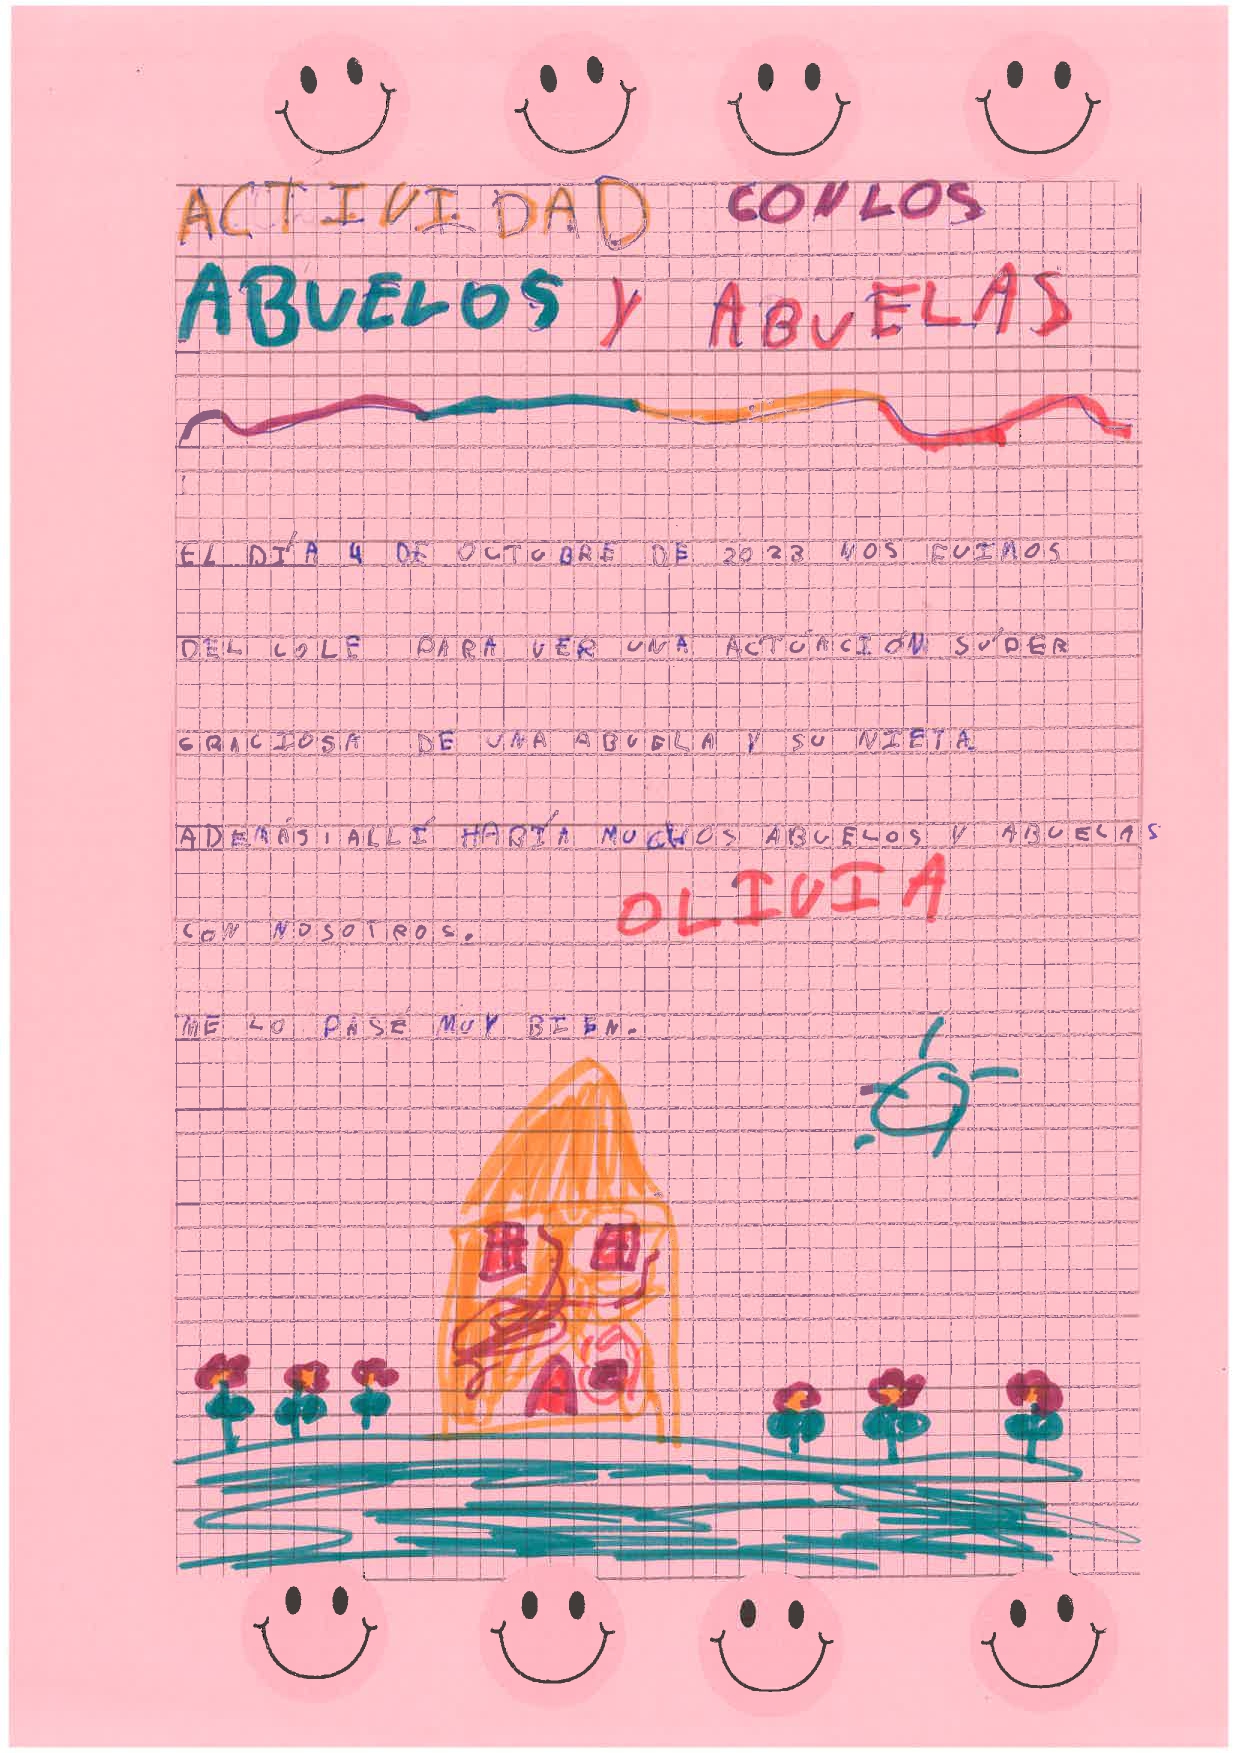 ACTIVIDAD CON LOS
ABUELOS Y ABUELAS
EL DÍA 4 DE OCTUBRE DE 2023 NOS FUIMOS
DEL COLE PARA VER UNA ACTUACIÓN SÚPER
GRACIOSA DE UNA ABUELA Y SU NIETA
ADEMÁS, ALLÍ HABÍA MUCHOS ABUELOS Y ABUELAS
OLIVIA
CON NOSOTROS.
ME LO PASÉ MUY BIEN.